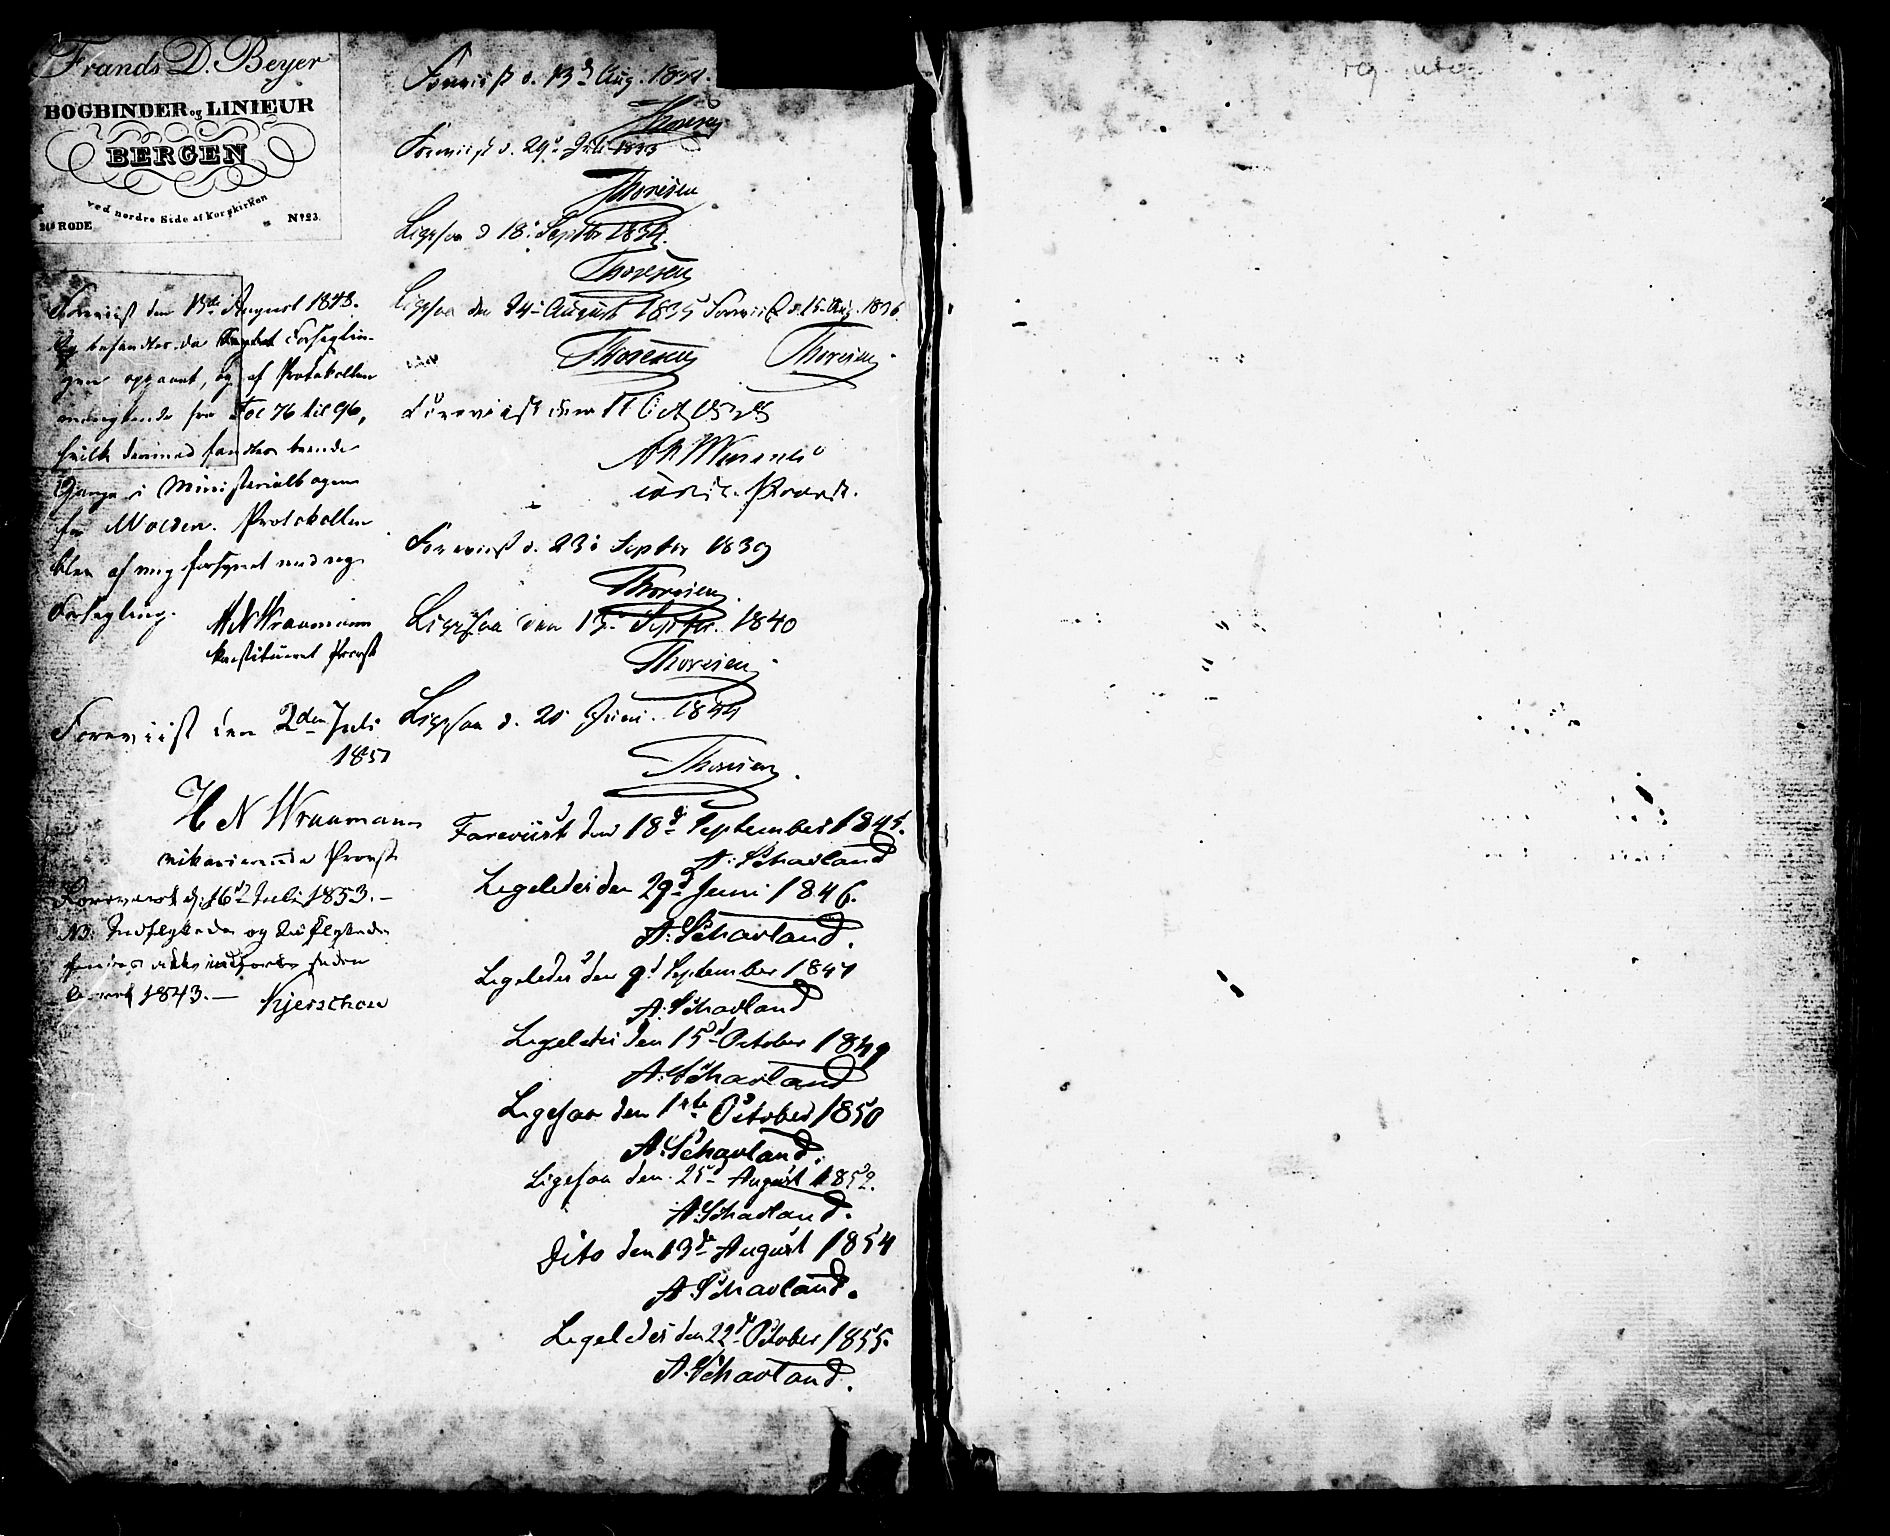 Frands D. Beyer
BOGBINDER og LINIEUR
BERGEN
ved nordre Side af Korskirken
RODE No 23.
Foreviist den 13de August 1843.
Og befandtes da Forseglin-
gen og af Protokollen
fra Fol 76 til 96,
hvilke derimod fandtes
i Ministerialbogen
for Protokollen
blev af mig forsynet med nye
Forsegling.
konstitueret Provst
Foreviist den 2den Juli
1851
H N Wraamann
vikarierende Provst
Foreviist d. 16de Juli 1853.-
NB: Indflyttede og Udflyttede
findes ikke indførte siden
1843.- Kjerschow
Foreviist d. 13de Aug. 183
Thoresen
Foreviist d. 29de Juli 1833
Thoresen
Ligesaa d 18de Septbr 1834.
Thoresen
Ligesaa den 24 August 1835 Foreviist d. 15 Aug. 1836
Thoresen Thoresen
Foreviist den 17 Oct
const. Provst.
Foreviist d. 23de Septbr 1839
Thoresen
Ligesaa den 15de Septbr. 1840
Thoresen
Ligesaa d. 20 Juni 1844
Thoresen
Foreviist den 18de September 1845.
A. Scharland
Ligeledes den 29de Juni 1846.
A. Scharland.
Ligeledes den 9de September 1847
A. Scharland
Ligeledes den 15de October 1849
A. Scharland
Ligesaa den 1ste October 1850
A. Scharland.
Ligesaa den 25de August 1852.
A. Scharland.
Dito den 13de August 1854
A. Scharland.
Ligeledes den 22de October 1855.
A. Scharland.